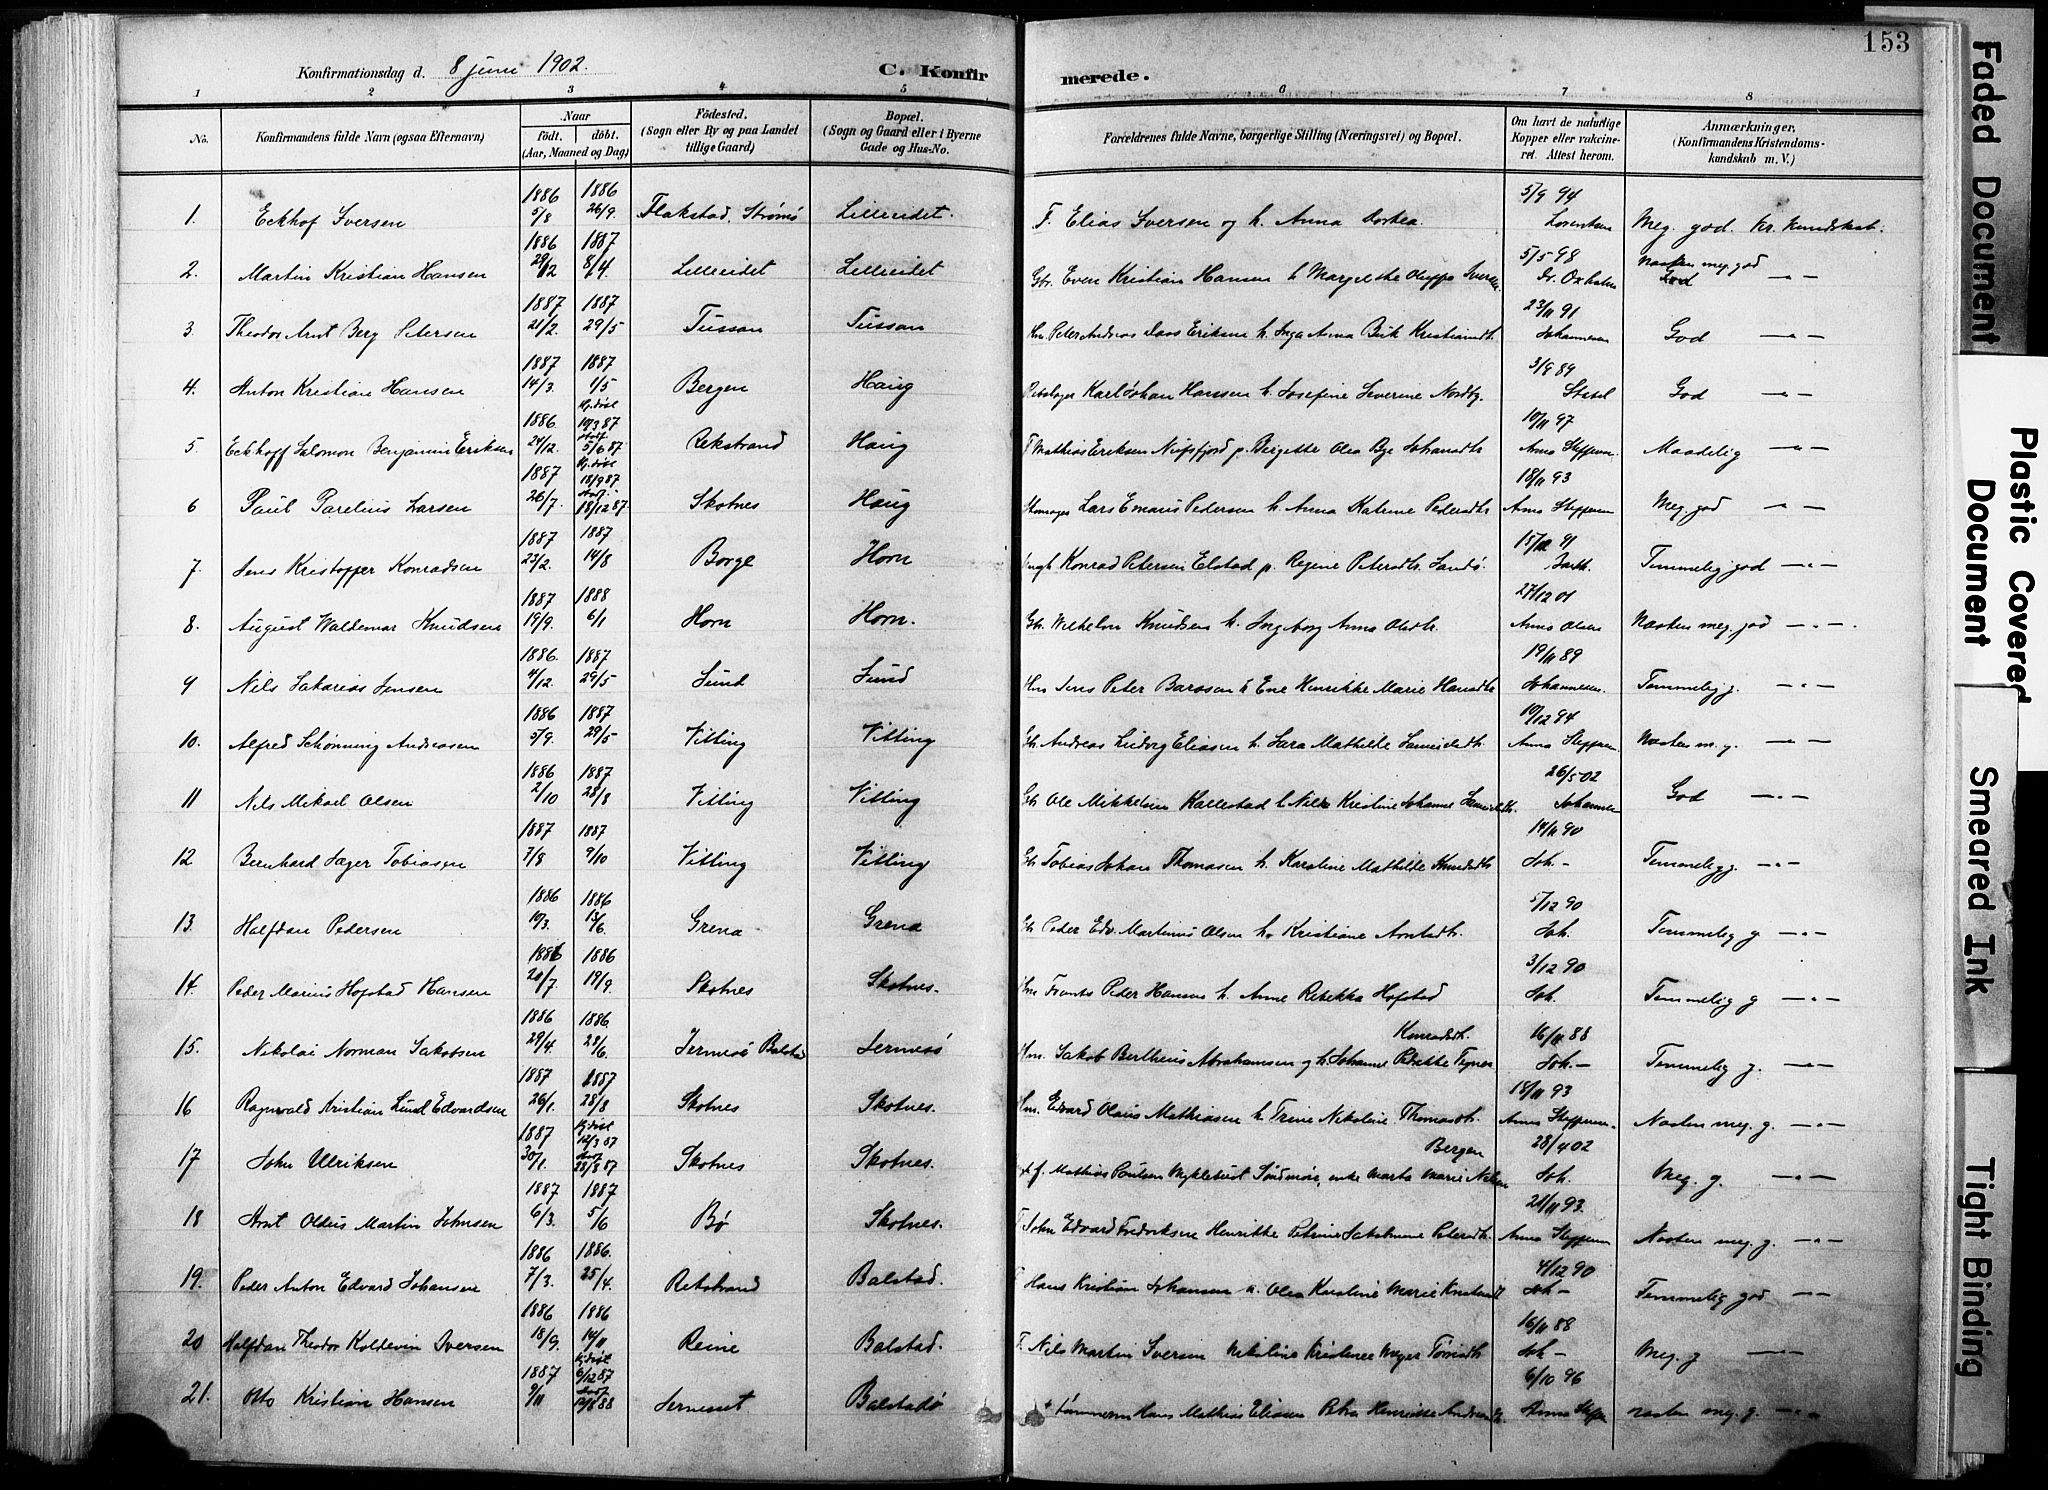 153
Konfirmationsdag d. 8 juni 1902.
C. Konfirmerede.
1 2 3 4 5 6 7 8
No.
Konfirmandens fulde Navn (ogsaa Efternavn)
Naar
födt. döbt.
(Aar, Maaned og Dag)
Födested.
(Sogn eller By og paa Landet
tillige Gaard)
Bopæl.
(Sogn og Gaard eller i Byerne
Gade og Hus-No.
Forældrenes fulde Navne, borgerlige Stilling (Næringsvei) og Bopæl.
Om havt de naturlige
Kopper eller vakcine-
ret. Attest herom.
Anmærkninger,
(Konfirmandens Kristendoms-
kundskab m. V.)
1. Eckhof Iversen 1886 5/8 1886 26/9. Flakstad, Strømø Lilleeidet. F. Elias Iversen og h. Anna Dortea 5/9 94 Meg. god. kr. kundskab.
2. Martin Kristian Hansen 1886 29/12 1887 8/4. Lilleeidet Lilleeidet Gbr. Even Kristian Hansen h. 5/5 98 Næsten meg. god — " —
3. Theodor Arnt Berg Petersen 1887 21/2. 1887 29/5 Tussan Tussan Hm. Peter Andreas Eriksen h. Inga Anna 23/11 91 Johannesen God — " —
4. Anton Kristian Hansen 1887 14/3. 1887 1/5 Bergen Haug Karl Johan Hansen h. Josefine Severine Nordby. 3/9 89 God "
5. Eckhoff Salomon Benjamin Eriksen 1886 24/12. Hj.døbt 10/3 87 5/6 87 Rekstrand Haug F Mathias Eriksen Nufsfjord p. Bergette Olea Bye Johansdtr 10/11 97 Anna Steffensen. Maadelig — " —
6 Paul Parelius Larsen 1887 26/7. Hj.døbt 18/9 87 18/12 87. Skotnes Haug Lars Emarius Pedersen h. Anna Katrine Pedersdtr 18/11 93 Anna Steffensen Meg. god "
7. Jens Kristoffer Konradsen 1887 23/2. 1887 14/8 Borge Horn Konrad Petersen Elstad p. Regine Petersdtr. Sandø. 15/12 91 Temmelig god — " —
8. August Waldemar Knudsen 1887 19/9. 1888 6/1 Horn Horn. Gbr. Wilhelm Knudsen h. Ingeborg Anna Olsdtr. 27/12 01 Anna Olsen Næsten meg. god — " —.
9 Nils Sakarias Jensen 1886. 4/12. 1887 29/5 Sund Sund Hm Jens Peter Baros​sen h Ene Henrikke Marie Hansdtr 19/11 89 Johannesen. Temmelig g. — " —
10. Alfred Schønning Andreasen 1886 5/9. 1887 29/5 Vitting Vitting Gbr. Andreas Ludvig Eliasen h. Sara Mathilde 10/12 94 Anna Steffensen. Næsten m. g. — " —
11 Nils Mikael Olsen 1886 2/10 1887 28/8 Vitting Vitting Gbr Ole Mikkelsen Kallestad h Kristine Johanne 26/5 02 Johannesen God — " —
12 Bernhard Jæger Tobiassen 1887 7/8 1887 9/10 Vitting Vitting Gbr Tobias Johan Thomasen h. Karoline Mathilde Knudsdtr 14/11 90 Joh. - Temmelig g. — " —
13. Halfdan Pedersen 1886 10/3. 1886 13/6. Grena Grena Gbr Peder Edv. Martinus Olsen h. Kristiane Arntsdtr. 5/12 90 Joh. Temmelig g — " —
14. Peder Marius Hofstad Hansen 1886 20/7. 1886 19/9. Skotnes Skotnes. Hm Frants Peder Hansen h. Anne Rebekka Hofstad 3/12 90 Joh. Temmelig g — " —
15. Nikolai Norman Jakobsen 1886 29/4. 1886. 28/6. Balstad Konradsdtr.
Hm. Jakob Bertheus Abrahamsen og h. Johanne Petrikke Tegner 16/11 88 Joh. — Temmelig g. — " —
16 Ragnvald Kristian Lund Edvardsen 1887 26/1. 1887 28/8 Skotnes Skotnes. Hm. Edvard Olaus Mathiasen h. Trine Nikoline Thomasdtr. 18/11 93 Anna Steffensen. Næsten meg. g. — " —
17 John Ulriksen 1887 30/1. Hj.døbt 12/3 87 28/8 87 Skotnes Skotnes. Bergen
f. Mathias Poulsen Myklebust Søndmøre, enke Marta Marie Nilsen 28/4 02 Joh. Meg. g. — " —
18 Arnt Oldus Martin Johnsen 1887 6/3. 1887 5/6 Bø Skotnes. F John Edvard Fredriksen Henrikke Petrine Jakobine Petersdtr. 21/11 93. Anna Steffensen Næsten meg. g. — " —
19. Peder Anton Edvard Johansen 1886 7/3. 1886. 25/4. Rekstrand Balstad. F Hans Kristian Johansen h. Olea Karoline Marie 4/12 90 Joh — Temmelig god — " —
20 Halfdan Theodor Koldevin Iversen 1886 18/9. 1886 14/11 Reine Balstad. F Nils Martin Iversen Nikoline Kristense Meyer 16/11 88 Joh — Meg. g
21. Otto Kristian Hansen 1887 9/11 Hj.døbt 6/12 87 88 Balstadø Tømmerm Hans Mathias Eliasen Petra Henriette 6/10 96 Anna næsten meg. g. — " —
Faded Document
Plastic Covered
Document
Smeared Ink
Tight Binding